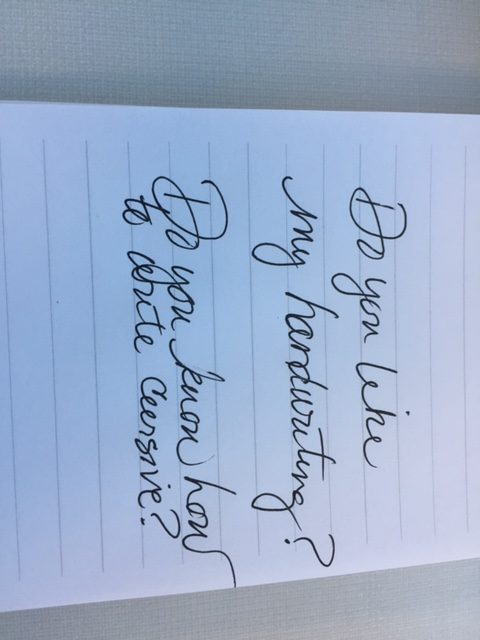 Do you like
my handwriting?
Do you know how
to write cursive?